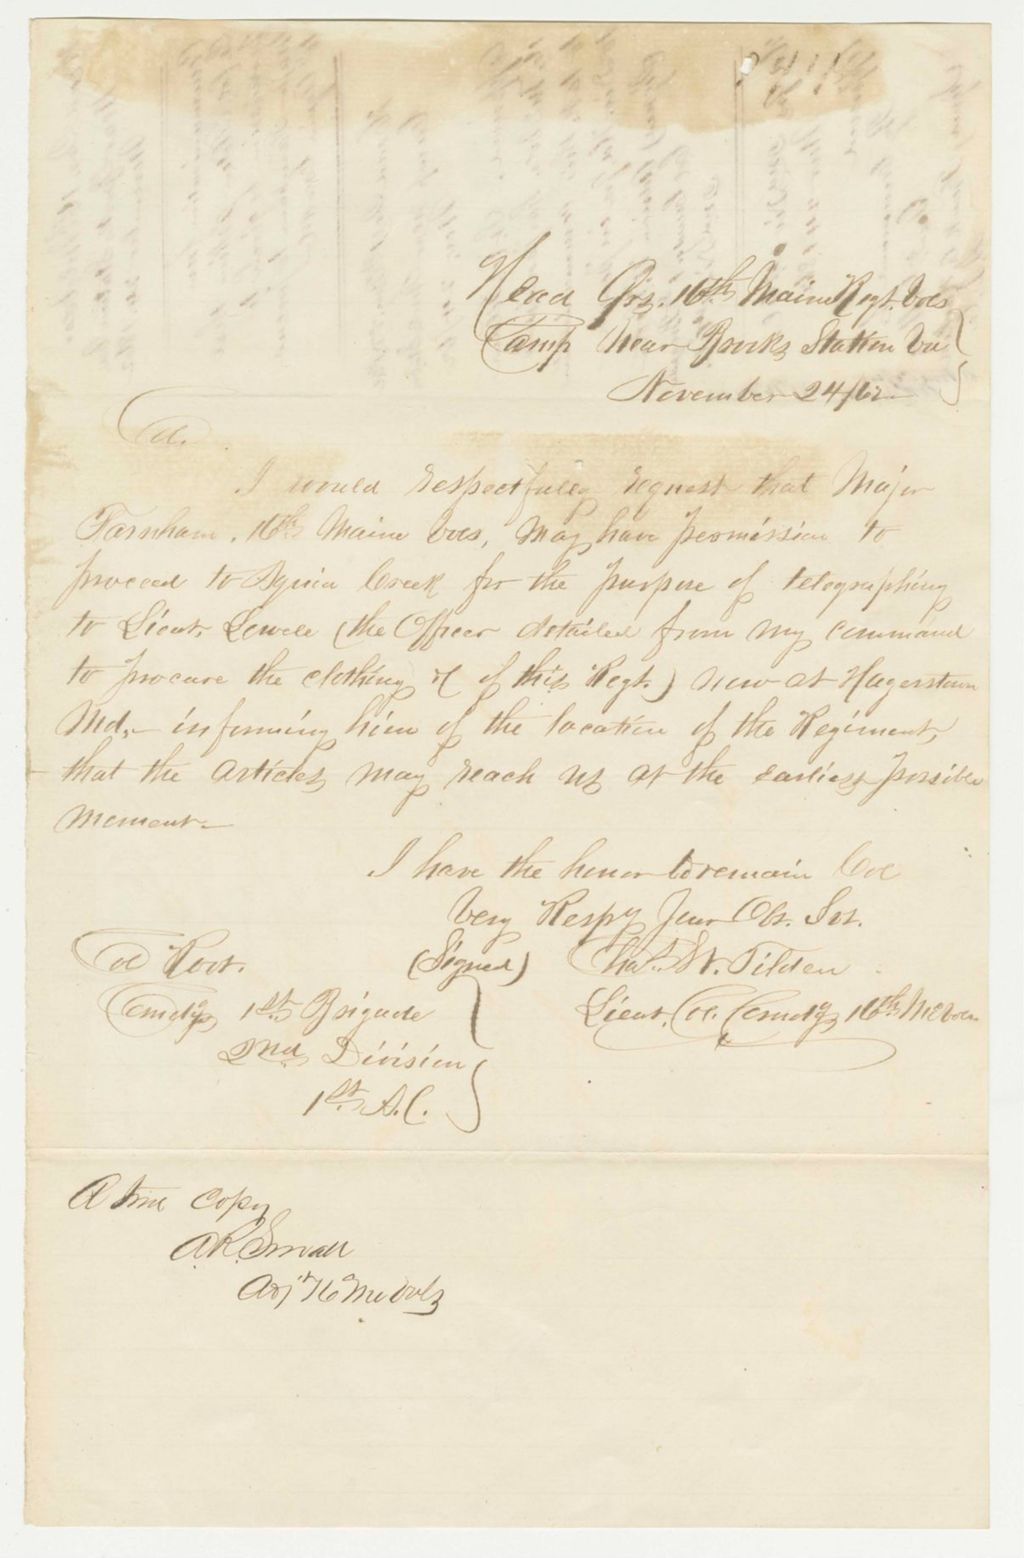 Head Qrs. 16th Maine Regt. Vols
Camp Near Brooks Station Va
November 24/62
Col.
I would respectfully request that Major
Farnham, 16th Maine Vols, may have permission to
proceed to Aquia Creek for the purpose of telegraphing
to Lieut. Lowell (the Officer detailed from my command
to procure the clothing &c of this Regt.) now at Hagerstown
Md, – informing him of the location of the Regiment,
that the articles may reach us at the earliest possible
moment. –
I have the honor to remain Col
Very Respy Your Obt. Svt.
(Signed) Chas. W. Tilden
Lieut. Col. Comdg 16th Me Vols
Col Root.
Comdg 1st Brigade
2nd Division
1st A.C.
A true copy
A.R. Small
Adjt 16 Me Vols